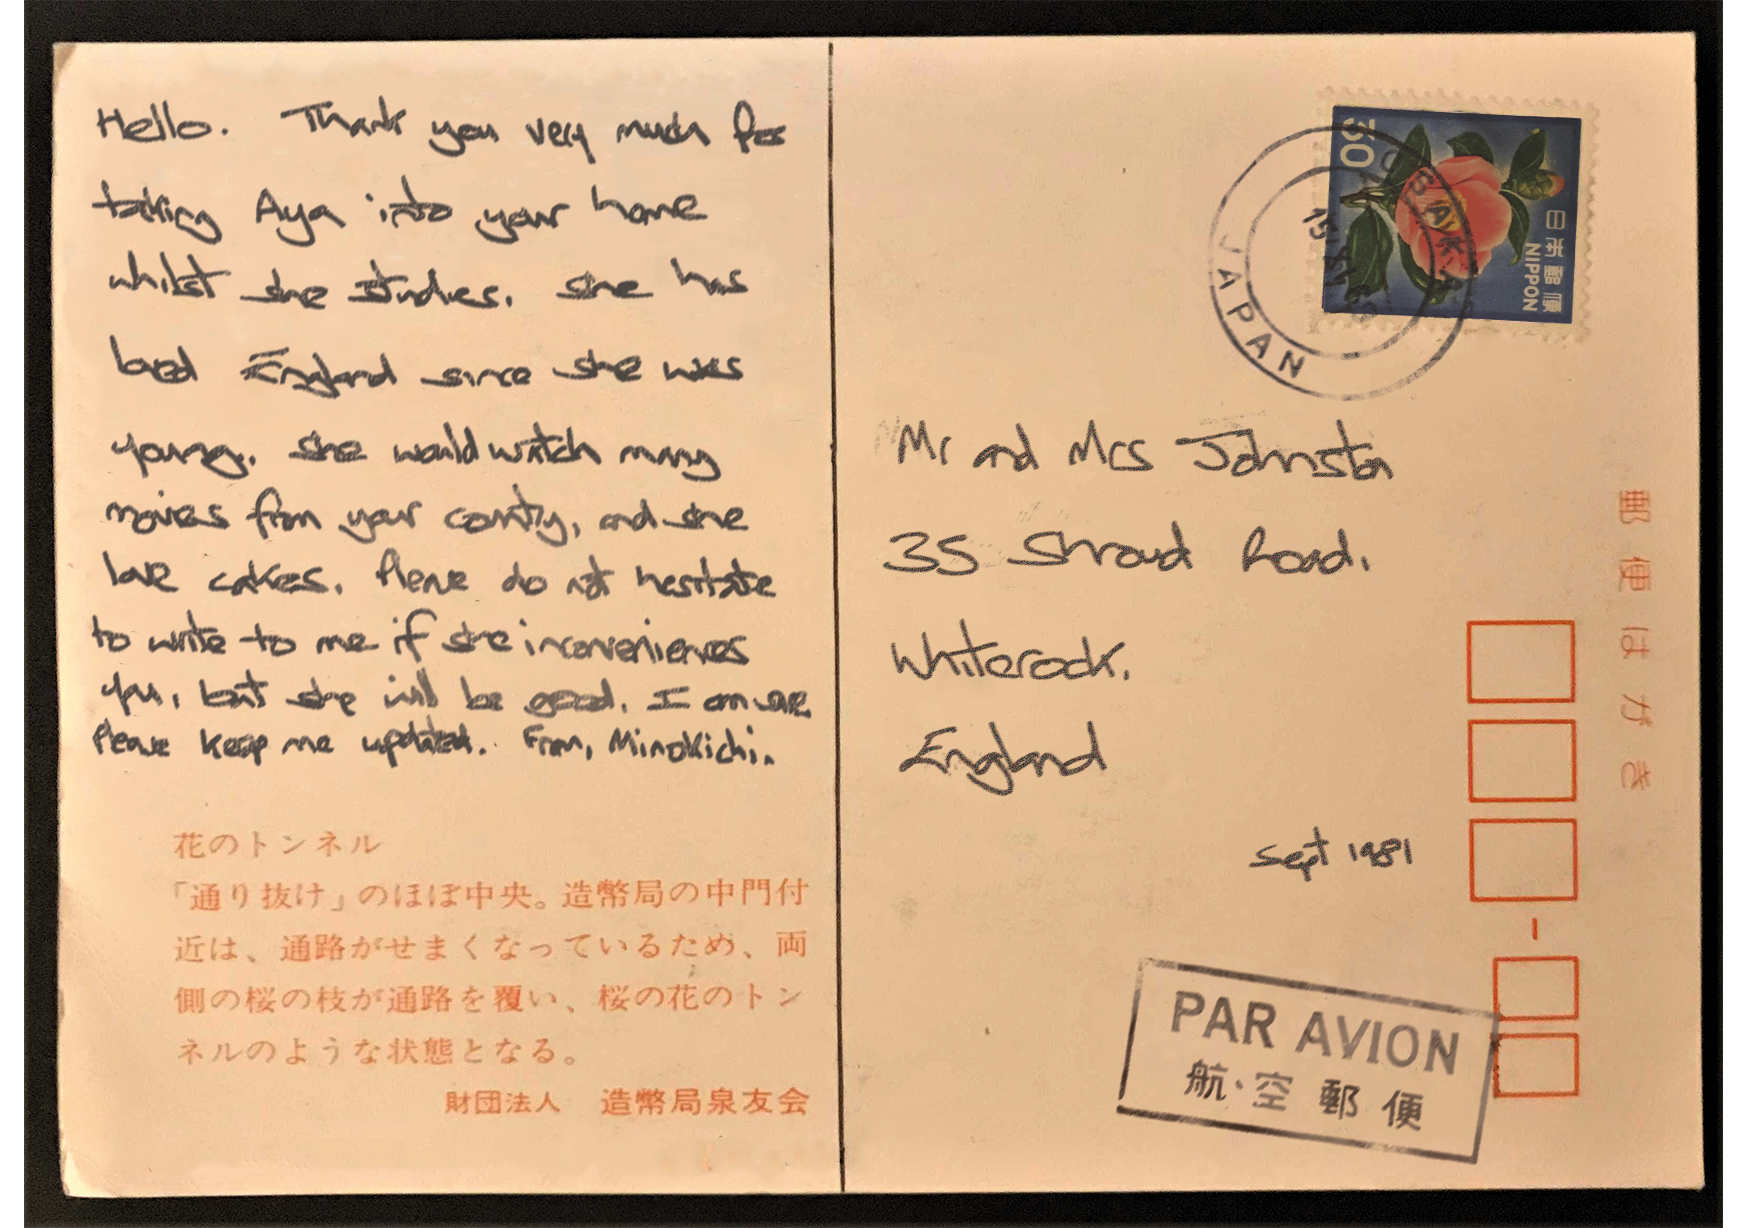 Hello. Thank you very much for
taking Aya into your home
whilst she studies. She has
loved England since she was
young. She would watch many
movies from your country, and she
love cakes. Please do not hesitate
to write to me if she inconveniences
you, but she will be good. I am sure
Please keep me updated. From, Minokichi.
花のトンネル
「通り抜け」のほぼ中央。造幣局の中門付
近は、通路がせまくなっているため、両
側の桜の枝が通路を覆い、桜の花のトン
ネルのような状態となる。
財団法人 造幣局泉友会
30
日本郵便
NIPPON
JAPAN
Mr and Mrs Johnston
35 Shroud Road.
Whiterock.
England
Sept 1981
郵便はがき
PAR AVION
航空郵便